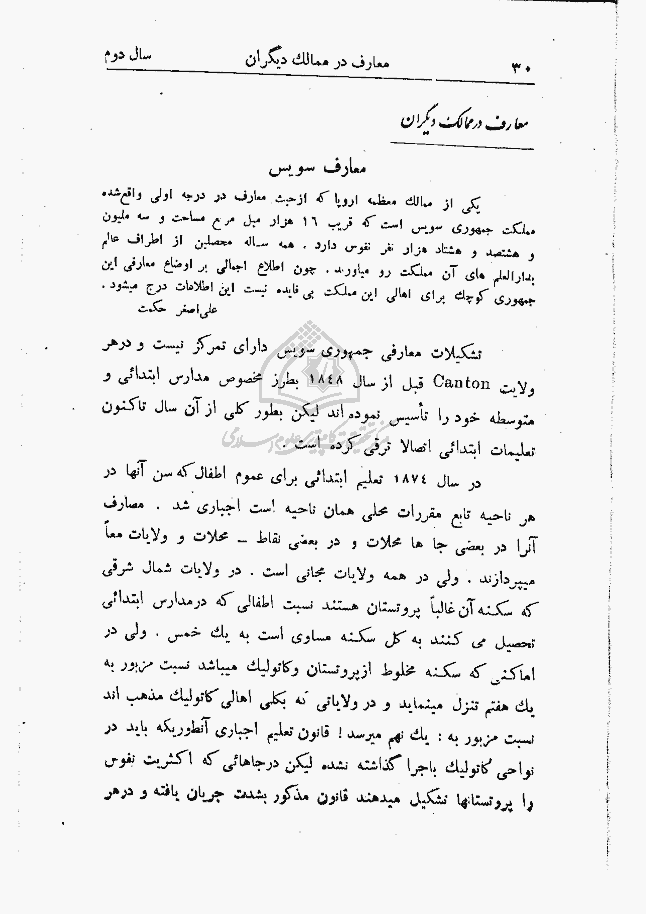 ۳۰ معارف در ممالك ديگران سال دوم
معارف در ممالك ديگران
معارف سويس
يكی از ممالك معظمه اروپا كه ازحيث معارف در درجه اولی واقع‌شده
مملكت جمهوری سويس است كه قريب ۱٦ هزار ميل مربع مساحت و سه مليون
و هشتصد و هشتاد هزار نفر نفوس دارد . همه ساله محصلين از اطراف عالم
بدارالعلم های آن مملكت رو مياورند . چون اطلاع اجمالی بر اوضاع معارفی اين
جمهوری كوچك برای اهالی اين مملكت بی فايده نيست اين اطلاعات درج ميشود .
علی‌اصغر حكمت
تشكيلات معارفی جمهوری سويس دارای تمركز نيست و درهر
ولايت Canton قبل از سال ۱۸٤۸ بطرز مخصوص مدارس ابتدائی و
متوسطه خود را تأسيس نموده اند ليكن بطور كلی از آن سال تاكنون
تعليمات ابتدائی اتصالا ترقی كرده است .
در سال ۱۸۷٤ تعليم ابتدائی برای عموم اطفال كه سن آنها در
هر ناحيه تابع مقررات محلی همان ناحيه است اجباری شد . مصارف
آنرا در بعضی جا ها محلات و در بعضی نقاط ــ محلات و ولايات معاً
ميپردازند . ولی در همه ولايات مجانی است . در ولايات شمال شرقی
كه سكنه آن غالباً پروتستان هستند نسبت اطفالی كه درمدارس ابتدائی
تحصيل می كنند به كل سكنه مساوی است به يك خمس . ولی در
اماكنی كه سكنه مخلوط ازپروتستان وكاتوليك ميباشد نسبت مزبور به
يك هفتم تنزل مينمايد و در ولاياتی كه بكلی اهالی كاتوليك مذهب اند
نسبت مزبور به : يك نهم ميرسد ! قانون تعليم اجباری آنطوريكه بايد در
نواحی كاتوليك باجرا گذاشته نشده ليكن درجاهائی كه اكثريت نفوس
را پروتستانها تشكيل ميدهند قانون مذكور بشدت جريان يافته و درهر